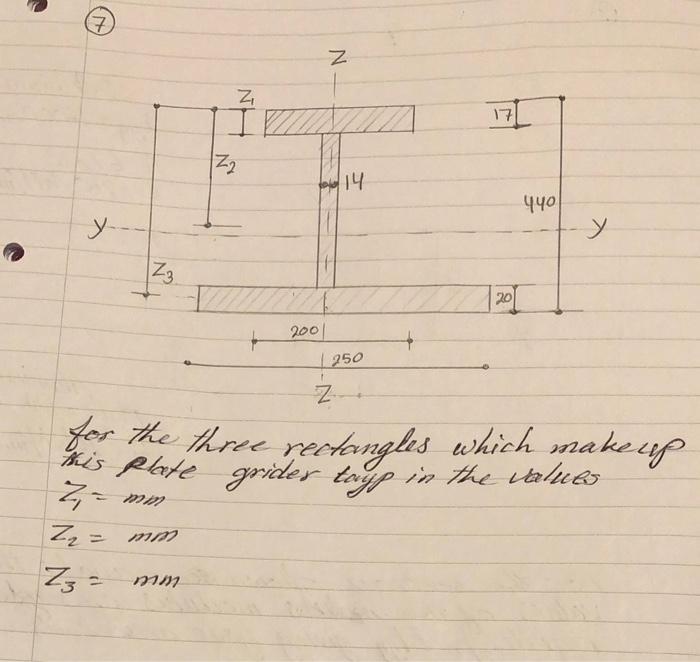 7
Z
Z1
17
Z2
14
440
y
y
Z3
20
200
250
Z
for the three rectangles which make up
this plate grider tayp in the values
Z1 = mm
Z2 = mm
Z3 = mm